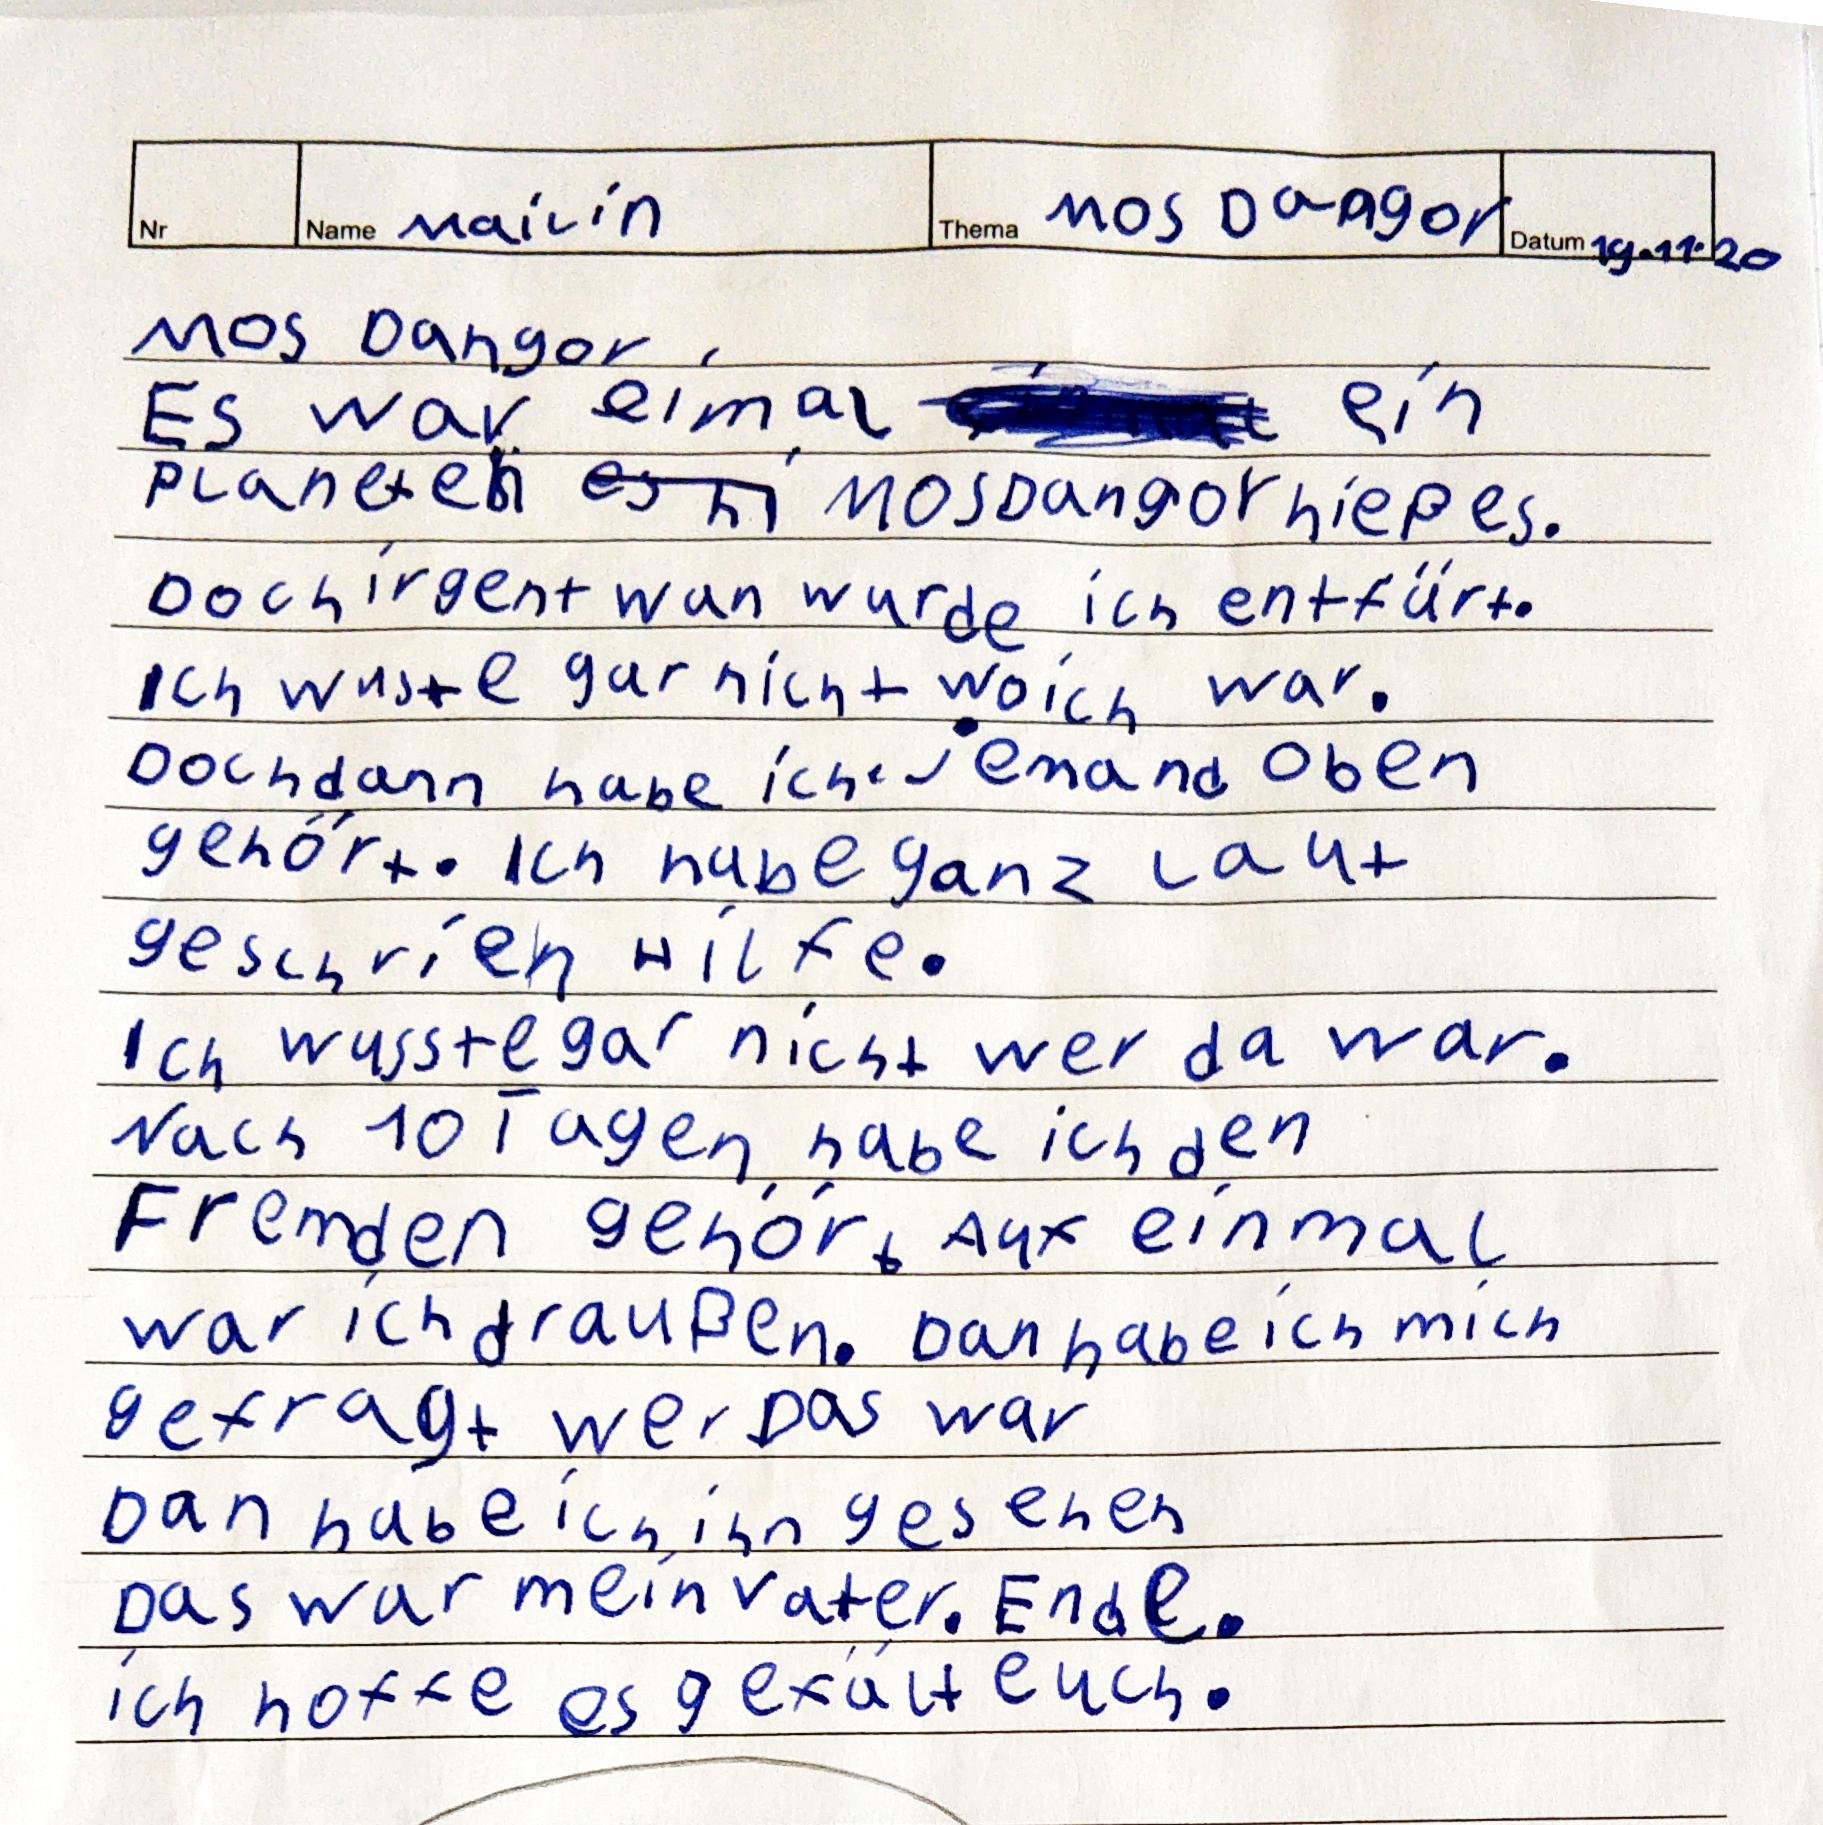 Nr Name Mailin Thema Mos Dangor Datum 19.11.20
Mos Dangor
Es war eimal ein
Planeten es hi Mos Dangor hieß es.
Doch irgent wan wurde ich entfürt.
Ich wuste gar nicht wo ich war.
Doch dann habe ich jemand oben
gehört. Ich habe ganz laut
geschrien Hilfe.
Ich wusste gar nicht wer da war.
Nach 10 Tagen habe ich den
Fremden gehört Auf einmal
war ich draußen. Dan habe ich mich
gefragt wer Das war
Dan habe ich ihn gesehen
Das war mein vater. Ende.
ich hoffe es gefält euch.